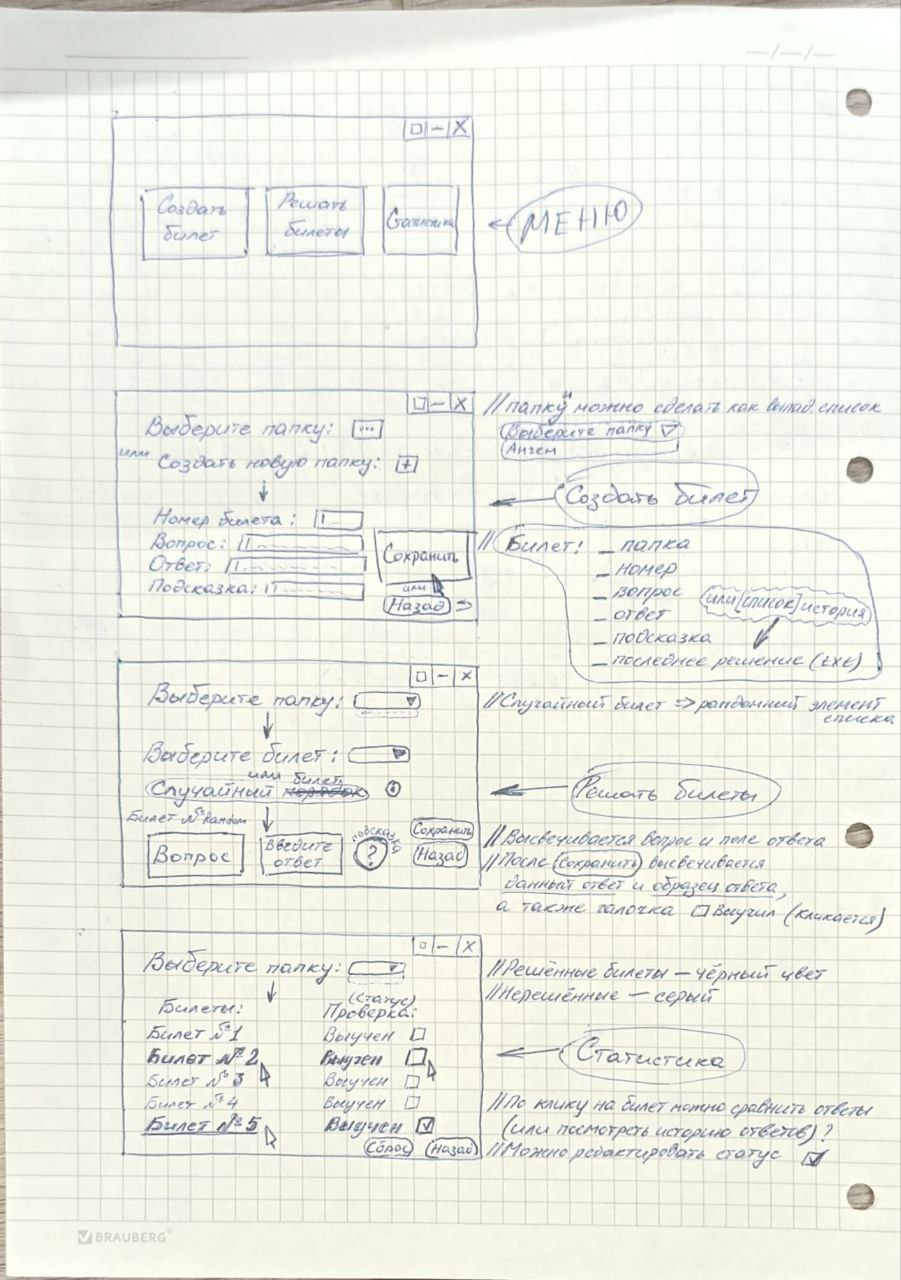 Создать билет
Решать билеты
Статистика
МЕНЮ
Выберите папку: ...
или
Создать новую папку: +
Номер билета:
Вопрос:
Ответ:
Подсказка:
Сохранить
или
Назад
// папку можно сделать как выпад. список
Выберите папку
Ангем
Создать билет
// Билет:
– папка
– номер
– вопрос
– ответ
– подсказка
– последнее решение (txt)
или [список] история
Выберите папку:
Выберите билет:
или билет
Случайный порядок
Билет № random
Вопрос
Введите ответ
подсказка
?
Сохранить
Назад
// Случайный билет => рандомный элемент
списка
Решать билеты
// Высвечивается вопрос и поле ответа
// После Сохранить высвечивается
данный ответ и образец ответа,
а также галочка Выучил (кликается)
Выберите папку:
Билеты:
(статус)
Проверка:
Билет №1 Выучен
Билет №2 Выучен
Билет №3 Выучен
Билет №4 Выучен
Билет №5 Выучен
Сброс Назад
// Решённые билеты – чёрный цвет
// Нерешённые – серый
Статистика
// По клику на билет можно сравнить ответы
(или посмотреть историю ответов)?
// Можно редактировать статус
BRAUBERG